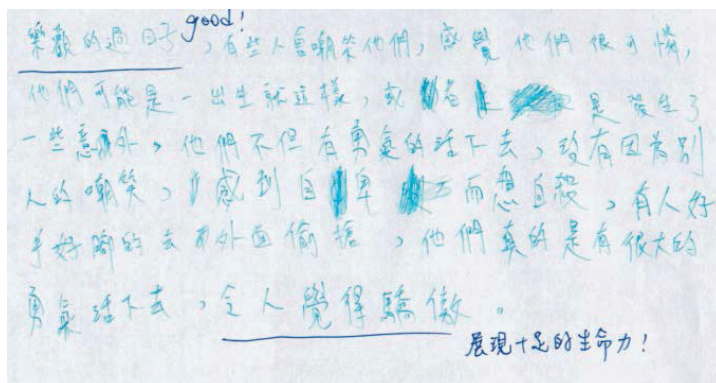 good!
樂觀的過日子,有些人會嘲笑他們,感覺他們很可憐,
他們可能是一出生就這樣,或者是發生了
一些意外,他們不但有勇氣的活下去,沒有因為別
人的嘲笑,感到自卑而想自殺,有人好
手好腳的去外面偷搶,他們真的是有很大的
勇氣活下去,令人覺得驕傲。
展現十足的生命力!